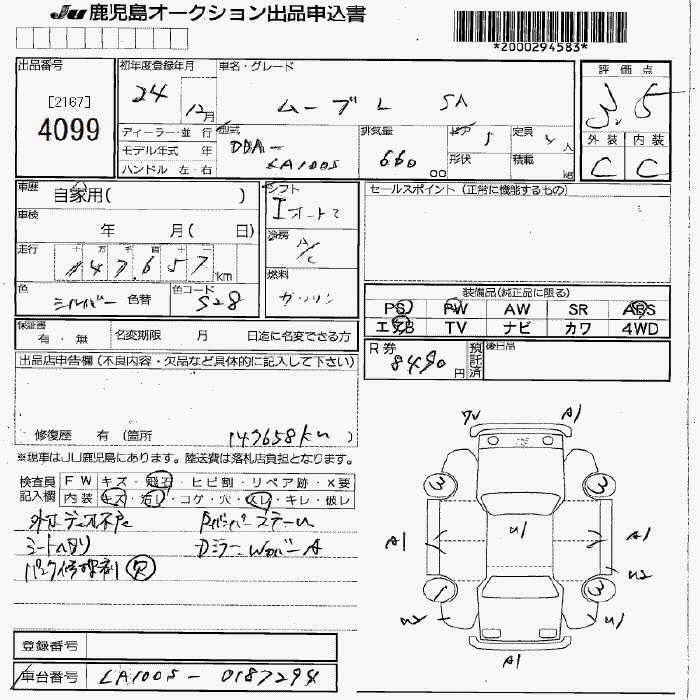 JU 鹿児島オークション出品申込書
*2000294583*
出品番号
[2167]
4099
初年度登録年月
24
12月
車名・グレード
ムーブ L SA
評価点
3.5
外装 内装
C C
ディーラー・並行
モデル年式 年
ハンドル 左・右
型式
DBA-
LA100S
排気量
660
cc
ドア
5
形状
定員
人
積載
kg
車歴
自家用( )
車検
年 月( 日)
走行
十 万 千 百 十 一
147,657 km
色
シルバー 色替
色コード
S28
シフト
オート
冷房
A/C
燃料
ガソリン
セールスポイント (正常に機能するもの)
装備品(純正品に限る)
PS PW AW SR ABS
エアB TV ナビ カワ 4WD
保証書
有・無
名変期限 月 日迄に名変できる方
R券
8490円
預託済
後日品
出品店申告欄 (不良内容・欠品など具体的に記入して下さい)
修復歴 有 (箇所 147658km )
※現車はJU鹿児島にあります。陸送費は落札店負担となります。
検査員記入欄
FW キズ・飛石・ヒビ割・リペア跡・X要
内装 キズ・汚レ・コゲ・穴・スレ・キレ・破レ
シートヘタリ
パンク修理剤 欠
登録番号
車台番号
LA100S - 0187294
A1
3
3
A1
A1
U1
U2
1
3
U1
A1